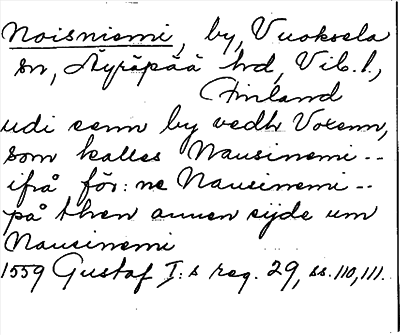 Noisniemi, by, Vuoksela
sn, Äyräpää hd, Vib. l.,
Finland
udi cenn by vedh Voxenn,
som kalles Nausinemi --
ifrå för: ne Nausinemi --
på then annen sijde um
Nausinemi
1559 Gustaf I:s reg. 29, ss. 110, 111.